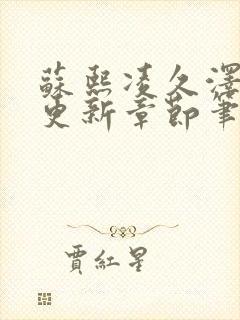 蘇熙凌久澤
更新章節筆
賈紅星